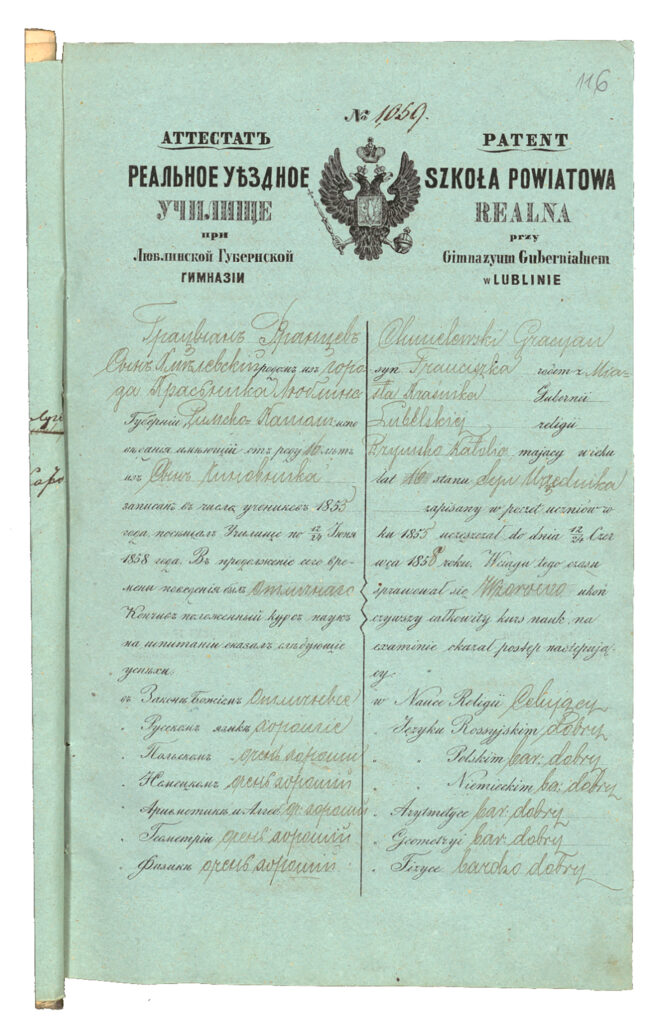 116
№ 1059.
АТТЕСТАТЪ
РЕАЛЬНОЕ УѢЗДНОЕ
УЧИЛИЩЕ
при
Люблинской Губернской
ГИМНАЗІИ
Граціанъ Францевъ
Сынъ Хмѣлевскій родомъ изъ Горо
да Красьника Люблинс
Губерніи Римско-Катол испо
вѣданія имѣющій отъ роду 16 лѣтъ
изъ Сынъ Чиновника
записанъ въ число учениковъ 1855
года, посѣщалъ Училище по 12/24 Іюня
1858 года. Въ продолженіе сего вре-
мени поведенія былъ Отличнаго
Кончивъ положенный курсъ наукъ
на испытаніи оказалъ слѣдующіе
успѣхи:
въ Законѣ Божіемъ Отличные
„ Русскомъ языкѣ хорошіе
„ Польскомъ очень хорошіи
„ Нѣмецкомъ очень хорошіи
„ Ариѳметикѣ и Алгеб. оч. хорошіи
„ Геометріи очень хорошіи
„ Физикѣ очень хорошіи
PATENT
SZKOŁA POWIATOWA
REALNA
przy
Gimnazyum Gubernialnem
w LUBLINIE
Chmielewski Gracyan
syn Franciszka rodem z Mia-
sta Kraśnika Gubernii
Lubelskiej religii
Rzymsko Katolic mający wieku
lat 16 stanu Syn Urzędnika
zapisany w poczet uczniów w ro
ku 1855 uczęszczał do dnia 12/24 Czer
wca 1858 roku. W ciągu tego czasu
sprawował się Wzorowo ukoń
czywszy całkowity kurs nauk, na
examinie okazał postęp następują-
cy:
w Nauce Religii Celujący
„ Języku Rossyjskim dobry
„ Polskim bar: dobry
„ Niemieckim ba: dobry
„ Arytmetyce bar: dobry
„ Geometryi bar: dobry
„ Fizyce bardzo dobry